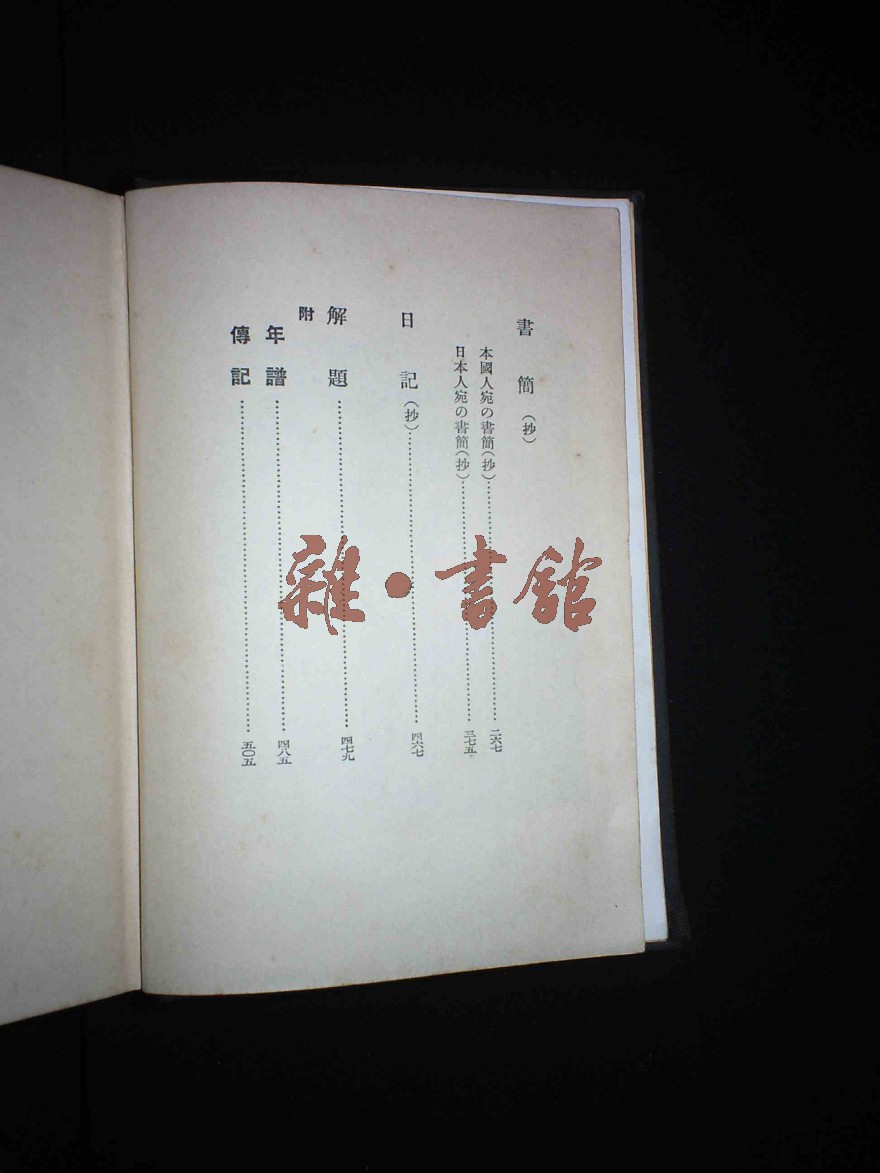 書簡（抄）
本國人宛の書簡（抄）……二六七
日本人宛の書簡（抄）……三七五
日記（抄）……四六七
解題……四七九
附
年譜……四八五
傳記……五〇五
雜・書館